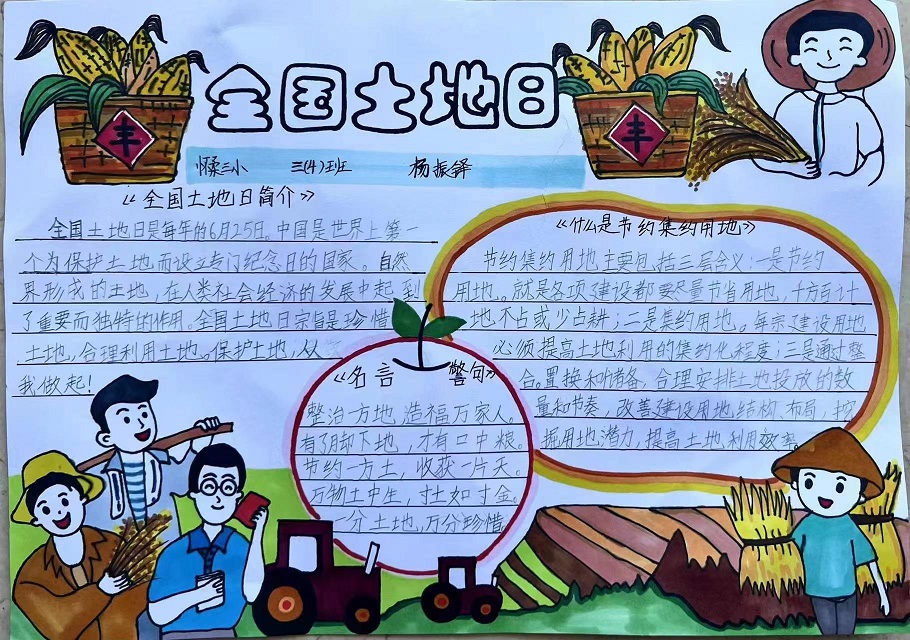 全国土地日
丰
丰
三小 三(4)班 杨振铎
《全国土地日简介》
全国土地日是每年的6月25日。中国是世界上第一
个为保护土地而设立专门纪念日的国家。自然
界形成的土地，在人类社会经济的发展中起到
了重要而独特的作用。全国土地日宗旨是珍惜
土地，合理利用土地。保护土地，从
我做起！
《什么是节约集约用地》
节约集约用地主要包括三层含义：一是节约
用地。就是各项建设都要尽量节省用地，千方百计
地不占或少占耕；二是集约用地。每宗建设用地
必须提高土地利用的集约化程度；三是通过整
合。置换和储备，合理安排土地投放的数
量和节奏，改善建设用地结构、布局，挖
掘用地潜力，提高土地利用效率。
《名言 警句》
整治一方地，造福万家人。
有了脚下地，才有口中粮。
节约一方土，收获一片天。
万物土中生，寸土如寸金。
一分土地，万分珍惜